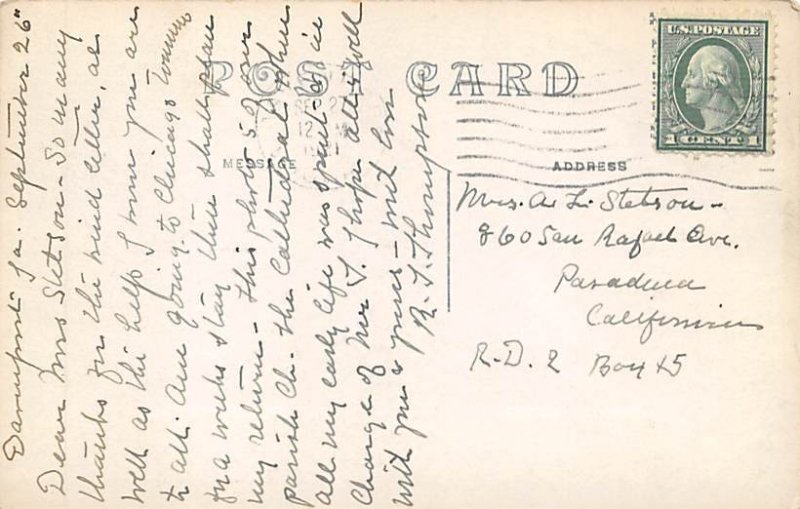 POST CARD
MESSAGE
ADDRESS
U.S. POSTAGE
1 CENT 1
Davenport Ia. September 26"
Dear Mrs Stetson - So many
thanks for the kind letter, as
well as the help. I mine you are
to all. Am going to Chicago Tomorrow
for a weeks stay then shall plan
my return - This photo is of our
parish Ch. the Cathedral where
all my early life was spent - in
Charge of Mrs T. I hope all is well
with you & yours - with love
R. T. Thompson
Mrs. A. L. Stetson -
860 San Rafael Ave.
Pasadena
California
R.D. 2 Box 45